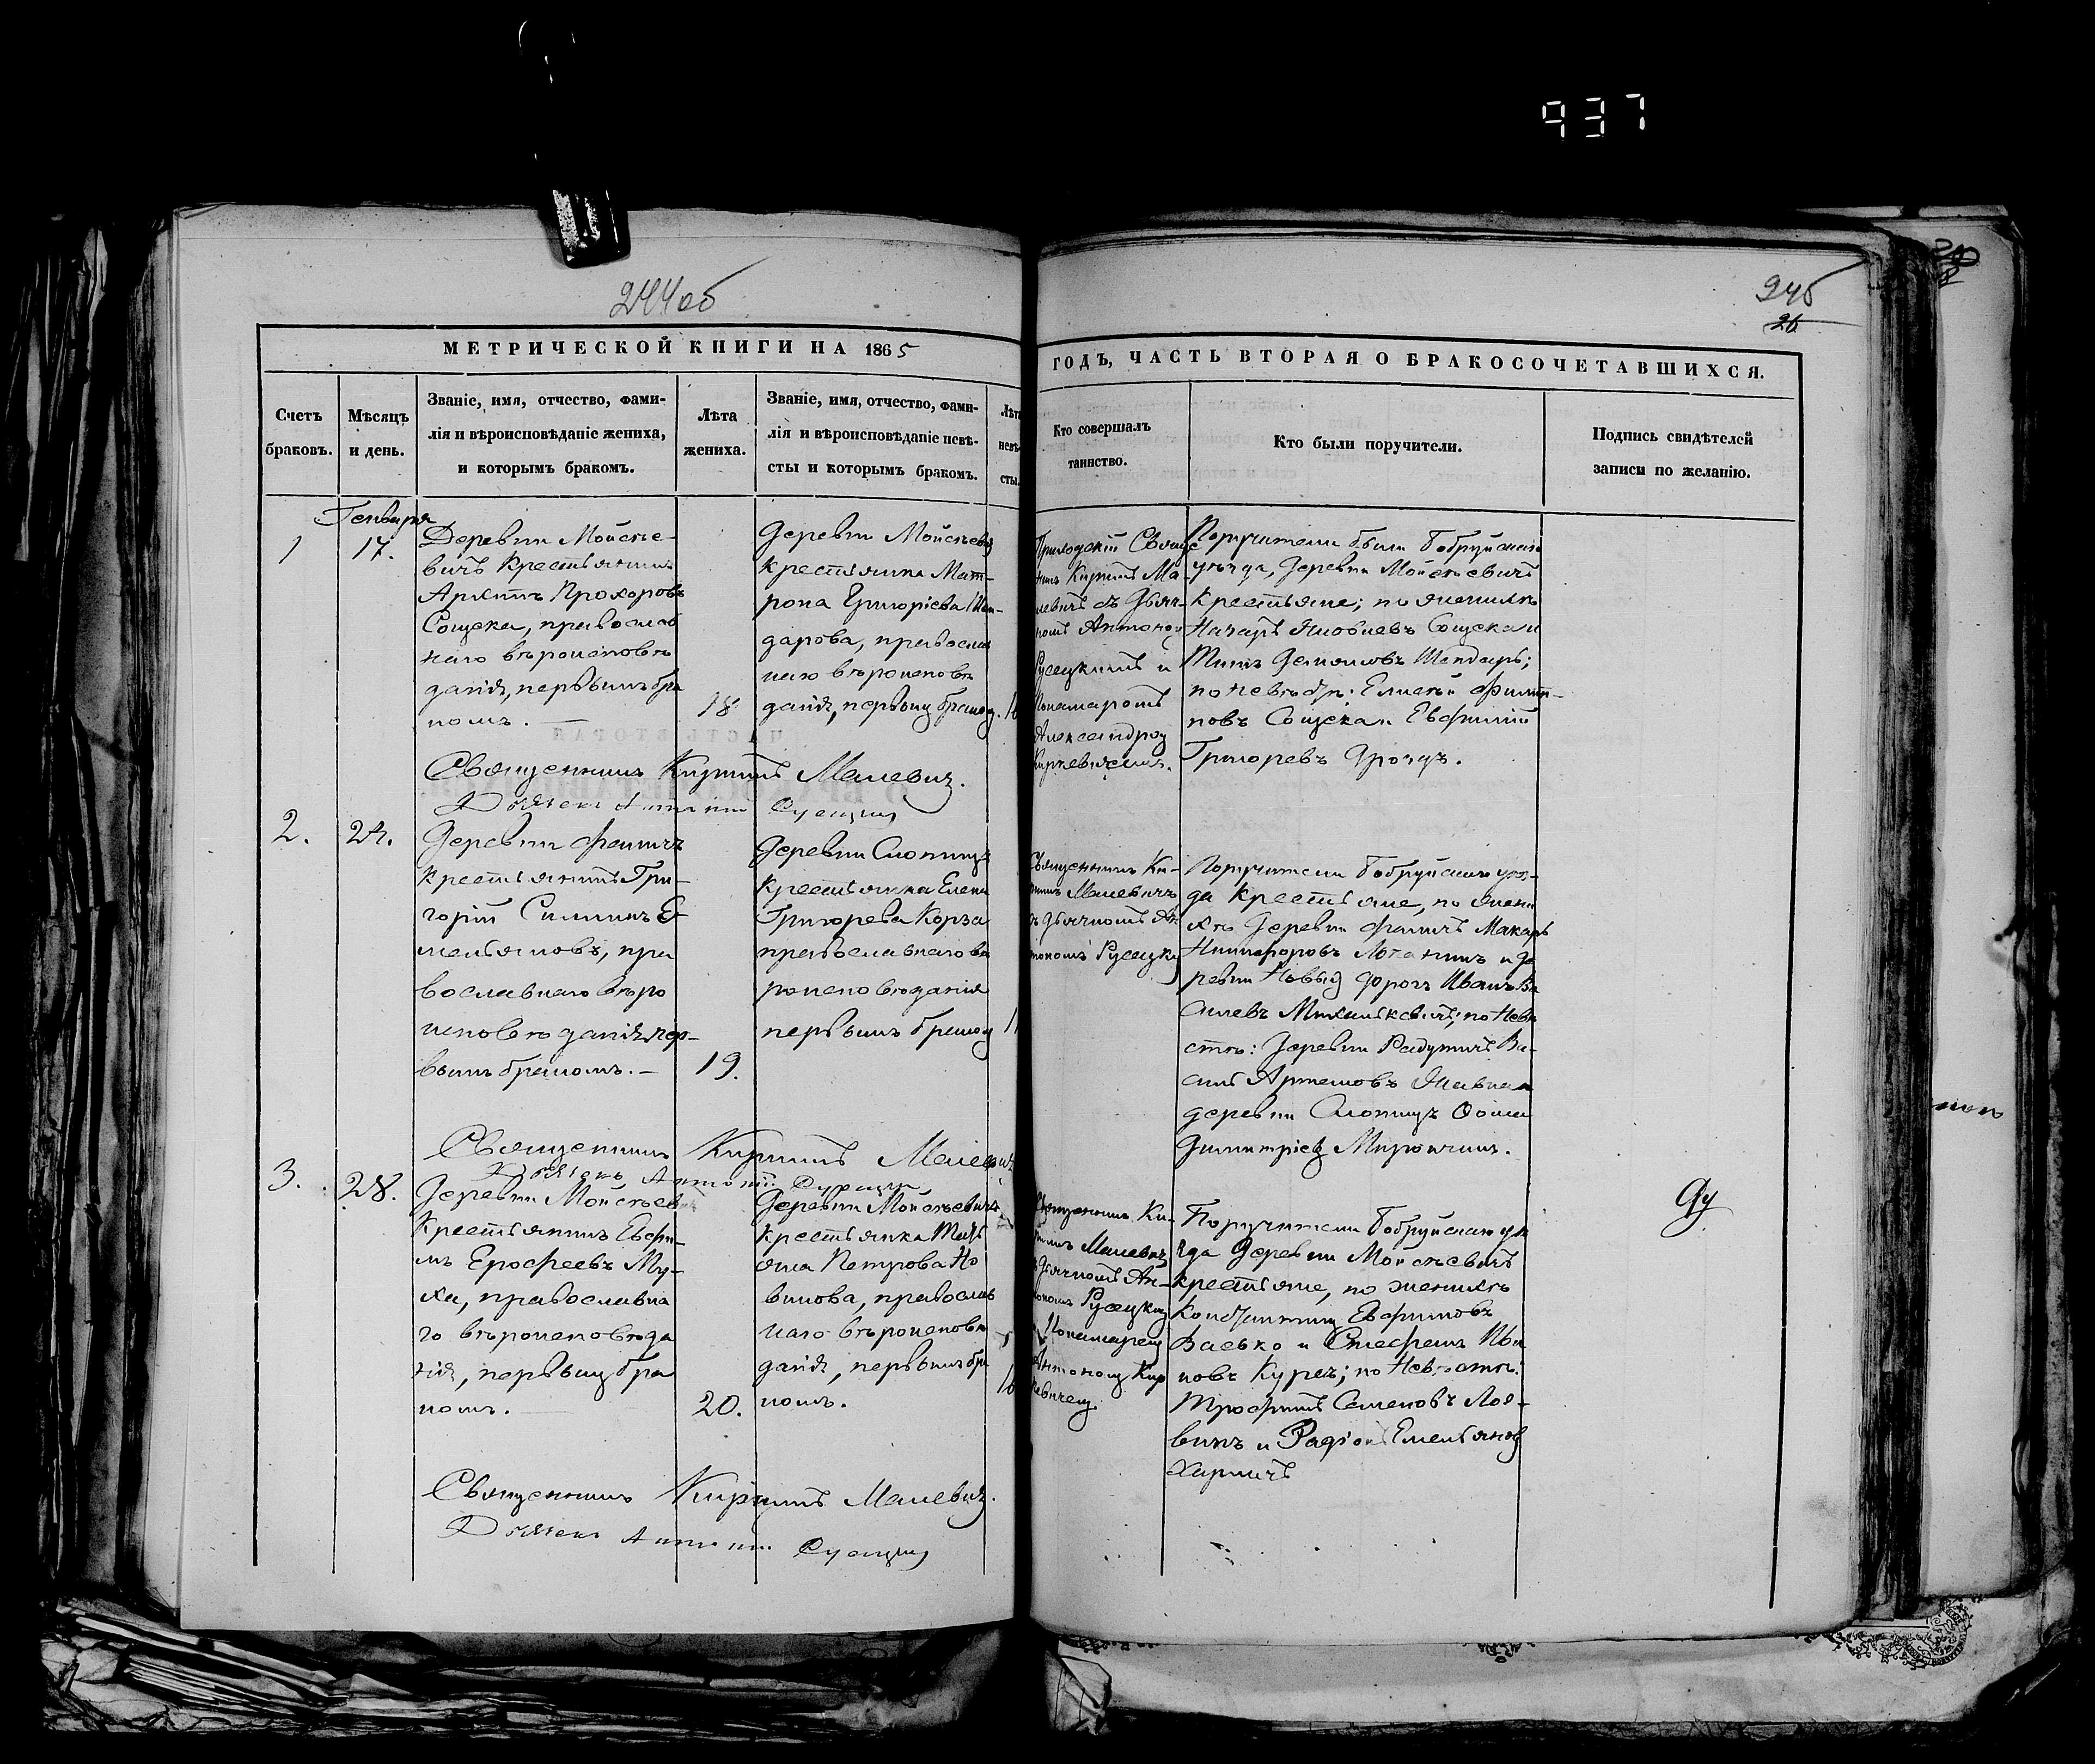 937
244об
245
26
МЕТРИЧЕСКОЙ КНИГИ НА 1865
ГОДЪ, ЧАСТЬ ВТОРАЯ О БРАКОСОЧЕТАВШИХСЯ.
Счетъ
браковъ.
Мѣсяцъ
и день.
Званіе, имя, отчество, фами-
лія и вѣроисповѣданіе жениха,
и которымъ бракомъ.
Лѣта
жениха.
Званіе, имя, отчество, фами-
лія и вѣроисповѣданіе невѣ-
сты и которымъ бракомъ.
Лѣта
невѣ-
сты.
Кто совершалъ
таинство.
Кто были поручители.
Подпись свидѣтелей
записи по желанію.
1
Генваря
17.
Деревни Мойсѣе-
вичъ Крестьянинъ
Архипъ Прохоровъ
Сощека, православ
наго вѣроисповѣ
данія, первымъ бра
комъ.
18
Деревни Мойсѣевич
крестьянка Мат-
рона Григоріева Шен-
дарова, православ
наго вѣроисповѣ
данія, первымъ бракомъ.
Приходскій Свяще
никъ Кириллъ Ма-
левичъ съ Дьяч-
комъ Антоніем
Русецкимъ и
Пономаремъ
Александром
Киркевичемъ.
Поручители были Бобруйскаго
уѣзда, Деревни Мойсѣевичъ
Крестьяне; по женихѣ
Назаръ Яковлевъ Сощека и
Демьяновъ Шендаръ;
по невѣстѣ: Елисей Филип-
повъ Сощека и Евфимій
Григорьевъ Дроздъ.
Священникъ Кириллъ Малевичъ.
Дьячекъ Антоній Русецкій
2.
24.
Деревни Фаличъ
Крестьянинъ Гри-
горій Е-
мельяновъ, пра
вославнаго вѣро
исповѣданія пер-
вымъ бракомъ.
19.
Деревни Слопищъ
Крестьянка Елена
Григорьева Корза
православнаго вѣ
роисповѣданія
первымъ бракомъ
Священникъ Ки-
риллъ Малевичъ
съ Дьячкомъ Ан
тоніемъ Русецким
Поручители Бобруйскаго уѣз-
да Крестьяне, по жени
хѣ Деревни Фаличъ Макаръ
Никифоровъ и де
ревни Новыхъ Дорогъ Иванъ Ва
сильевъ по Невѣ
стѣ: Деревни Радутичъ Ва-
силь Артемовъ
деревни Слопищъ Фома
Димитріев
Священникъ Кириллъ Малевичъ
Дьячекъ Антоній Русецкій
3.
28.
Деревни Мойсѣев
Крестьянинъ Евфи-
мъ Ерофеевъ Му-
ха, православна
го вѣроисповѣда
нія, первымъ бра
комъ.
20.
Деревни Мойсѣевичъ
крестьянка Тать
яна Петрова Но
викова, православ
наго вѣроисповѣ
данія, первымъ бра
комъ.
Священникъ Ки-
риллъ Малевичъ
съ Дьячкомъ Ан-
тоніемъ Русецким
и Пономарем
Антоніем Кир
кевичем
Поручители Бобруйскаго уѣ
зда Деревни Мойсѣевичъ
крестьяне, по женихѣ
Константинъ Евфимовъ
Васько и Стефанъ
новъ Курец; по Невѣстѣ:
Трофимъ Семеновъ
и Радіонъ Емельянов
Харличъ
Священникъ Кириллъ Малевичъ.
Дьячекъ Антоній Русецкій